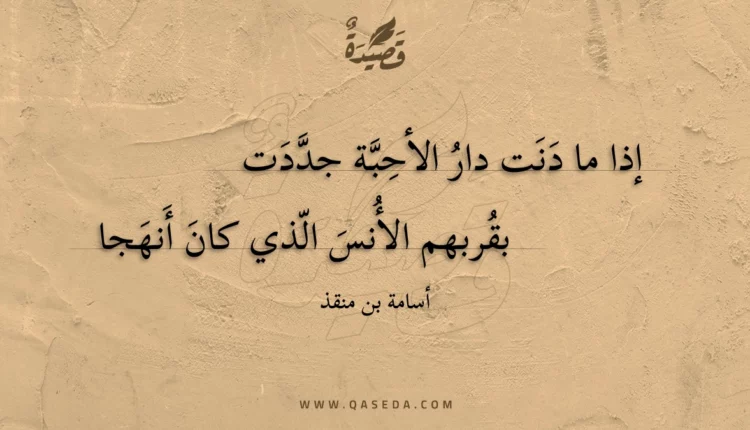 قَصِيدَةٌ
إذا ما دَنَت دارُ الأحِبَّة جدَّدَت
بقُربهم الأُنسَ الّذي كانَ أَنهَجا
أسامة بن منقذ
WWW.QASEDA.COM